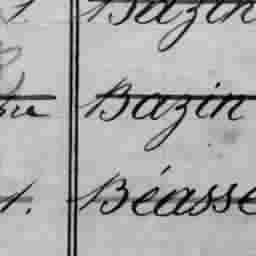 1. Bazin
Bazin
1. Béasse